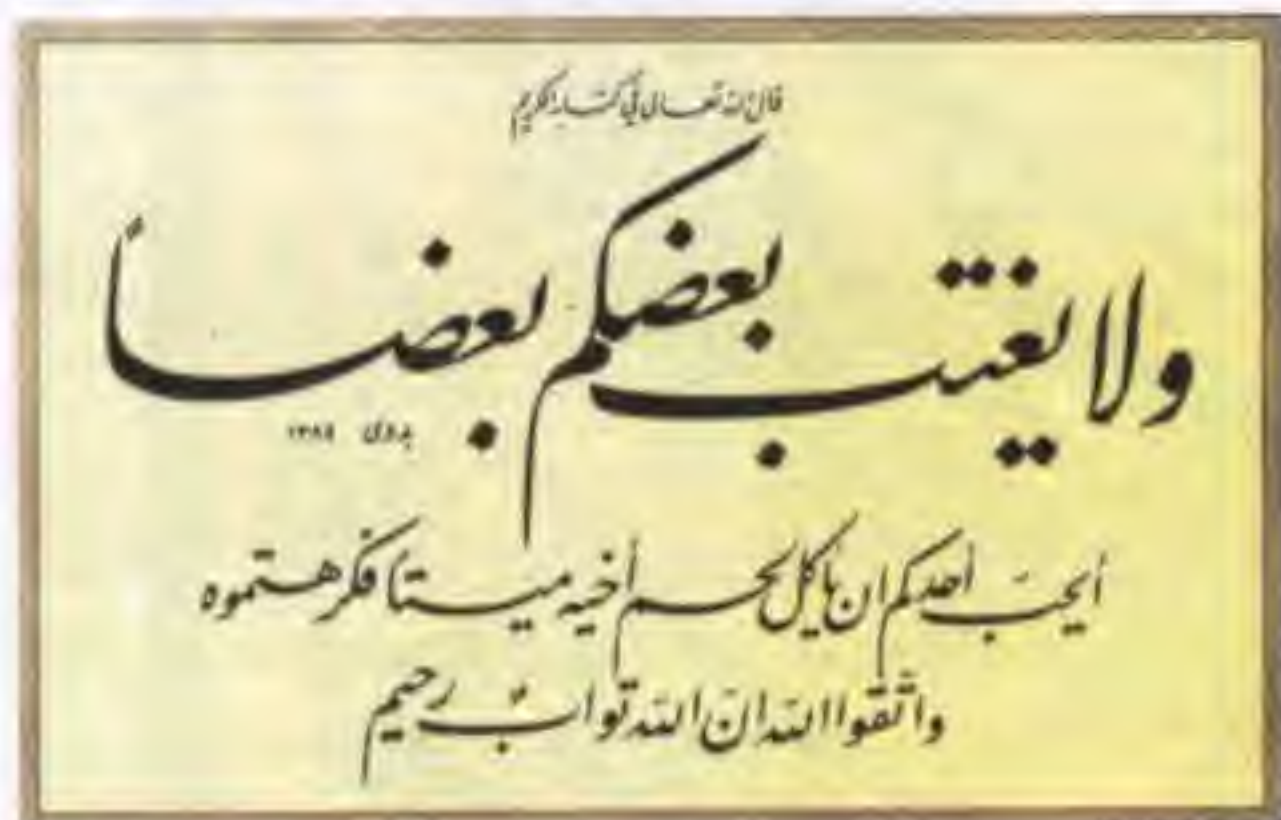 قال الله تعالى في كتابه الكريم
ولا يغتب بعضكم بعضاً
بدوى ١٣٨٤
أيحبّ احدكم ان ياكل لحم أخيه ميتاً فكرهتموه
واتّقوا الله انّ الله توابٌ رحيم